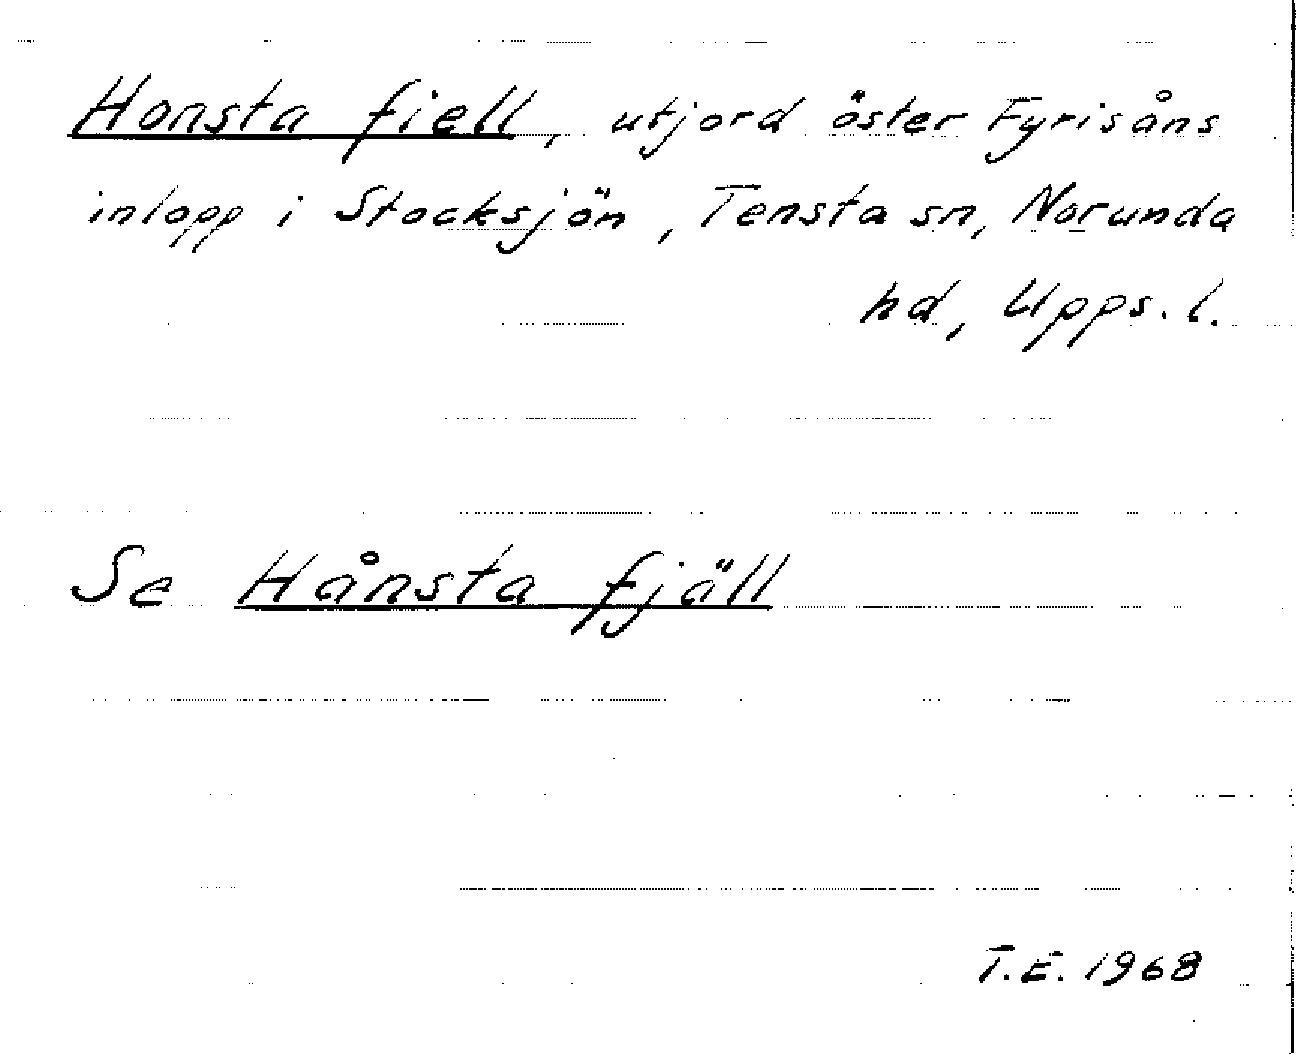 Honsta fiell, utjord öster Fyrisåns
inlopp i Stocksjön, Tensta sn, Norunda
hd, Upps. l.
Se Hånsta fjäll
T.E. 1968